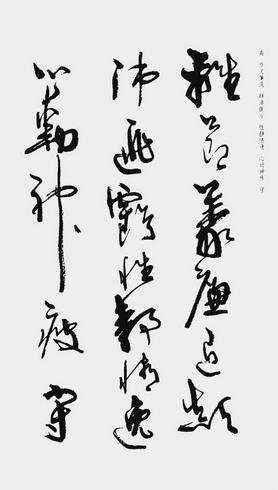 離節義廉退顛
沛匪虧性靜情逸
心動神疲守